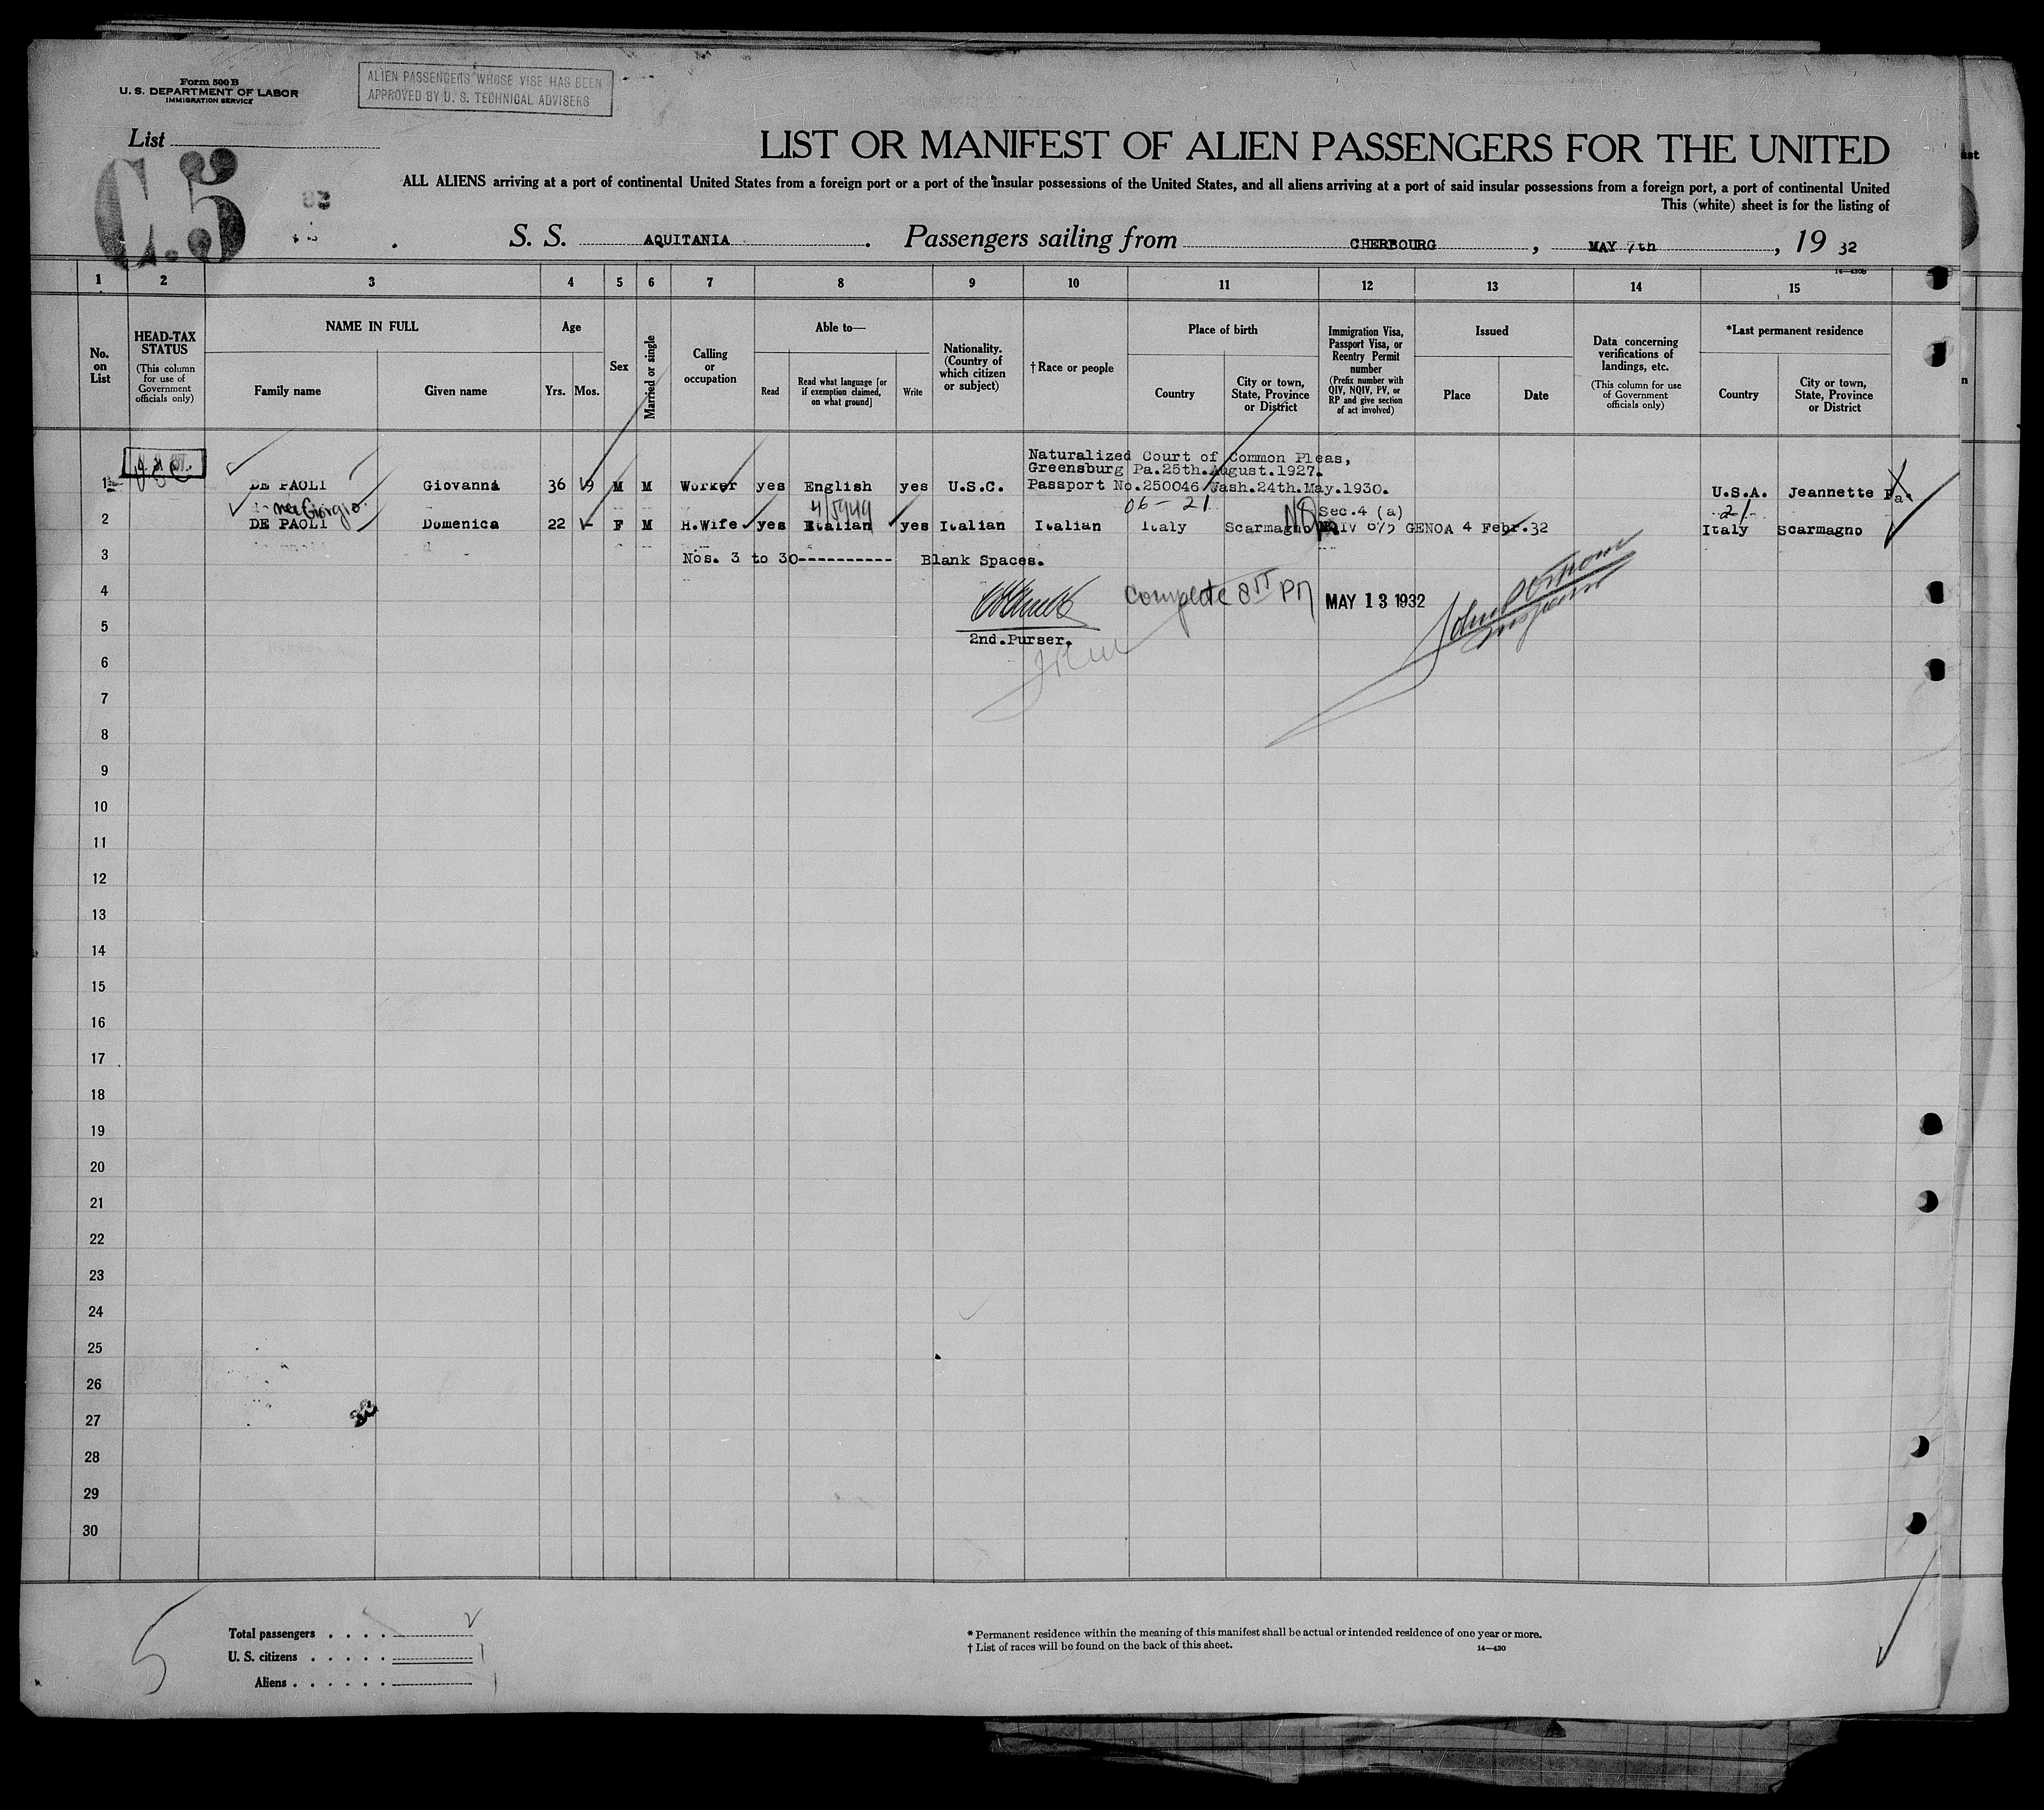 Form 500 B
U. S. DEPARTMENT OF LABOR
IMMIGRATION SERVICE
ALIEN PASSENGERS WHOSE VISE HAS BEEN
APPROVED BY U. S. TECHNICAL ADVISERS
List
C.5
LIST OR MANIFEST OF ALIEN PASSENGERS FOR THE UNITED
ALL ALIENS arriving at a port of continental United States from a foreign port or a port of the insular possessions of the United States, and all aliens arriving at a port of said insular possessions from a foreign port, a port of continental United
This (white) sheet is for the listing of
S. S. AQUITANIA. Passengers sailing from CHERBOURG, MAY 7th, 19 32
14—430B
1 2 3 4 5 6 7 8 9 10 11 12 13 14 15
No. on List
HEAD-TAX STATUS
(This column for use of Government officials only)
NAME IN FULL
Family name
Given name
Age
Yrs. Mos.
Sex
Married or single
Calling or occupation
Able to—
Read
Read what language [or if exemption claimed, on what ground]
Write
Nationality. (Country of which citizen or subject)
† Race or people
Place of birth
Country
City or town, State, Province or District
Immigration Visa, Passport Visa, or Reentry Permit number
(Prefix number with QIV, NQIV, PV, or RP and give section of act involved)
Issued
Place
Date
Data concerning verifications of landings, etc.
(This column for use of Government officials only)
*Last permanent residence
Country
City or town, State, Province or District
Naturalized Court of Common Pleas,
Greensburg Pa.25th.August.1927.
1 DE PAOLI Giovanna 36 M M Worker yes English yes U.S.C. Passport No.250046 Wash.24th.May.1930. U.S.A. Jeannette Pa.
nee Giorgio 4/5949 06 - 21 Sec.4 (a) 21
2 DE PAOLI Domenica 22 - F M H.Wife yes Italian yes Italian Italian Italy Scarmagno IV 675 GENOA 4 Febr.32 Italy Scarmagno
3 Nos. 3 to 30---------- Blank Spaces.
4 Complete MAY 13 1932
5 2nd.Purser.
6
7
8
9
10
11
12
13
14
15
16
17
18
19
20
21
22
23
24
25
26
27
28
29
30
5
Total passengers . . . . 2
U. S. citizens . . . . . 1
Aliens . . . . . . 1
* Permanent residence within the meaning of this manifest shall be actual or intended residence of one year or more.
† List of races will be found on the back of this sheet.
14—430